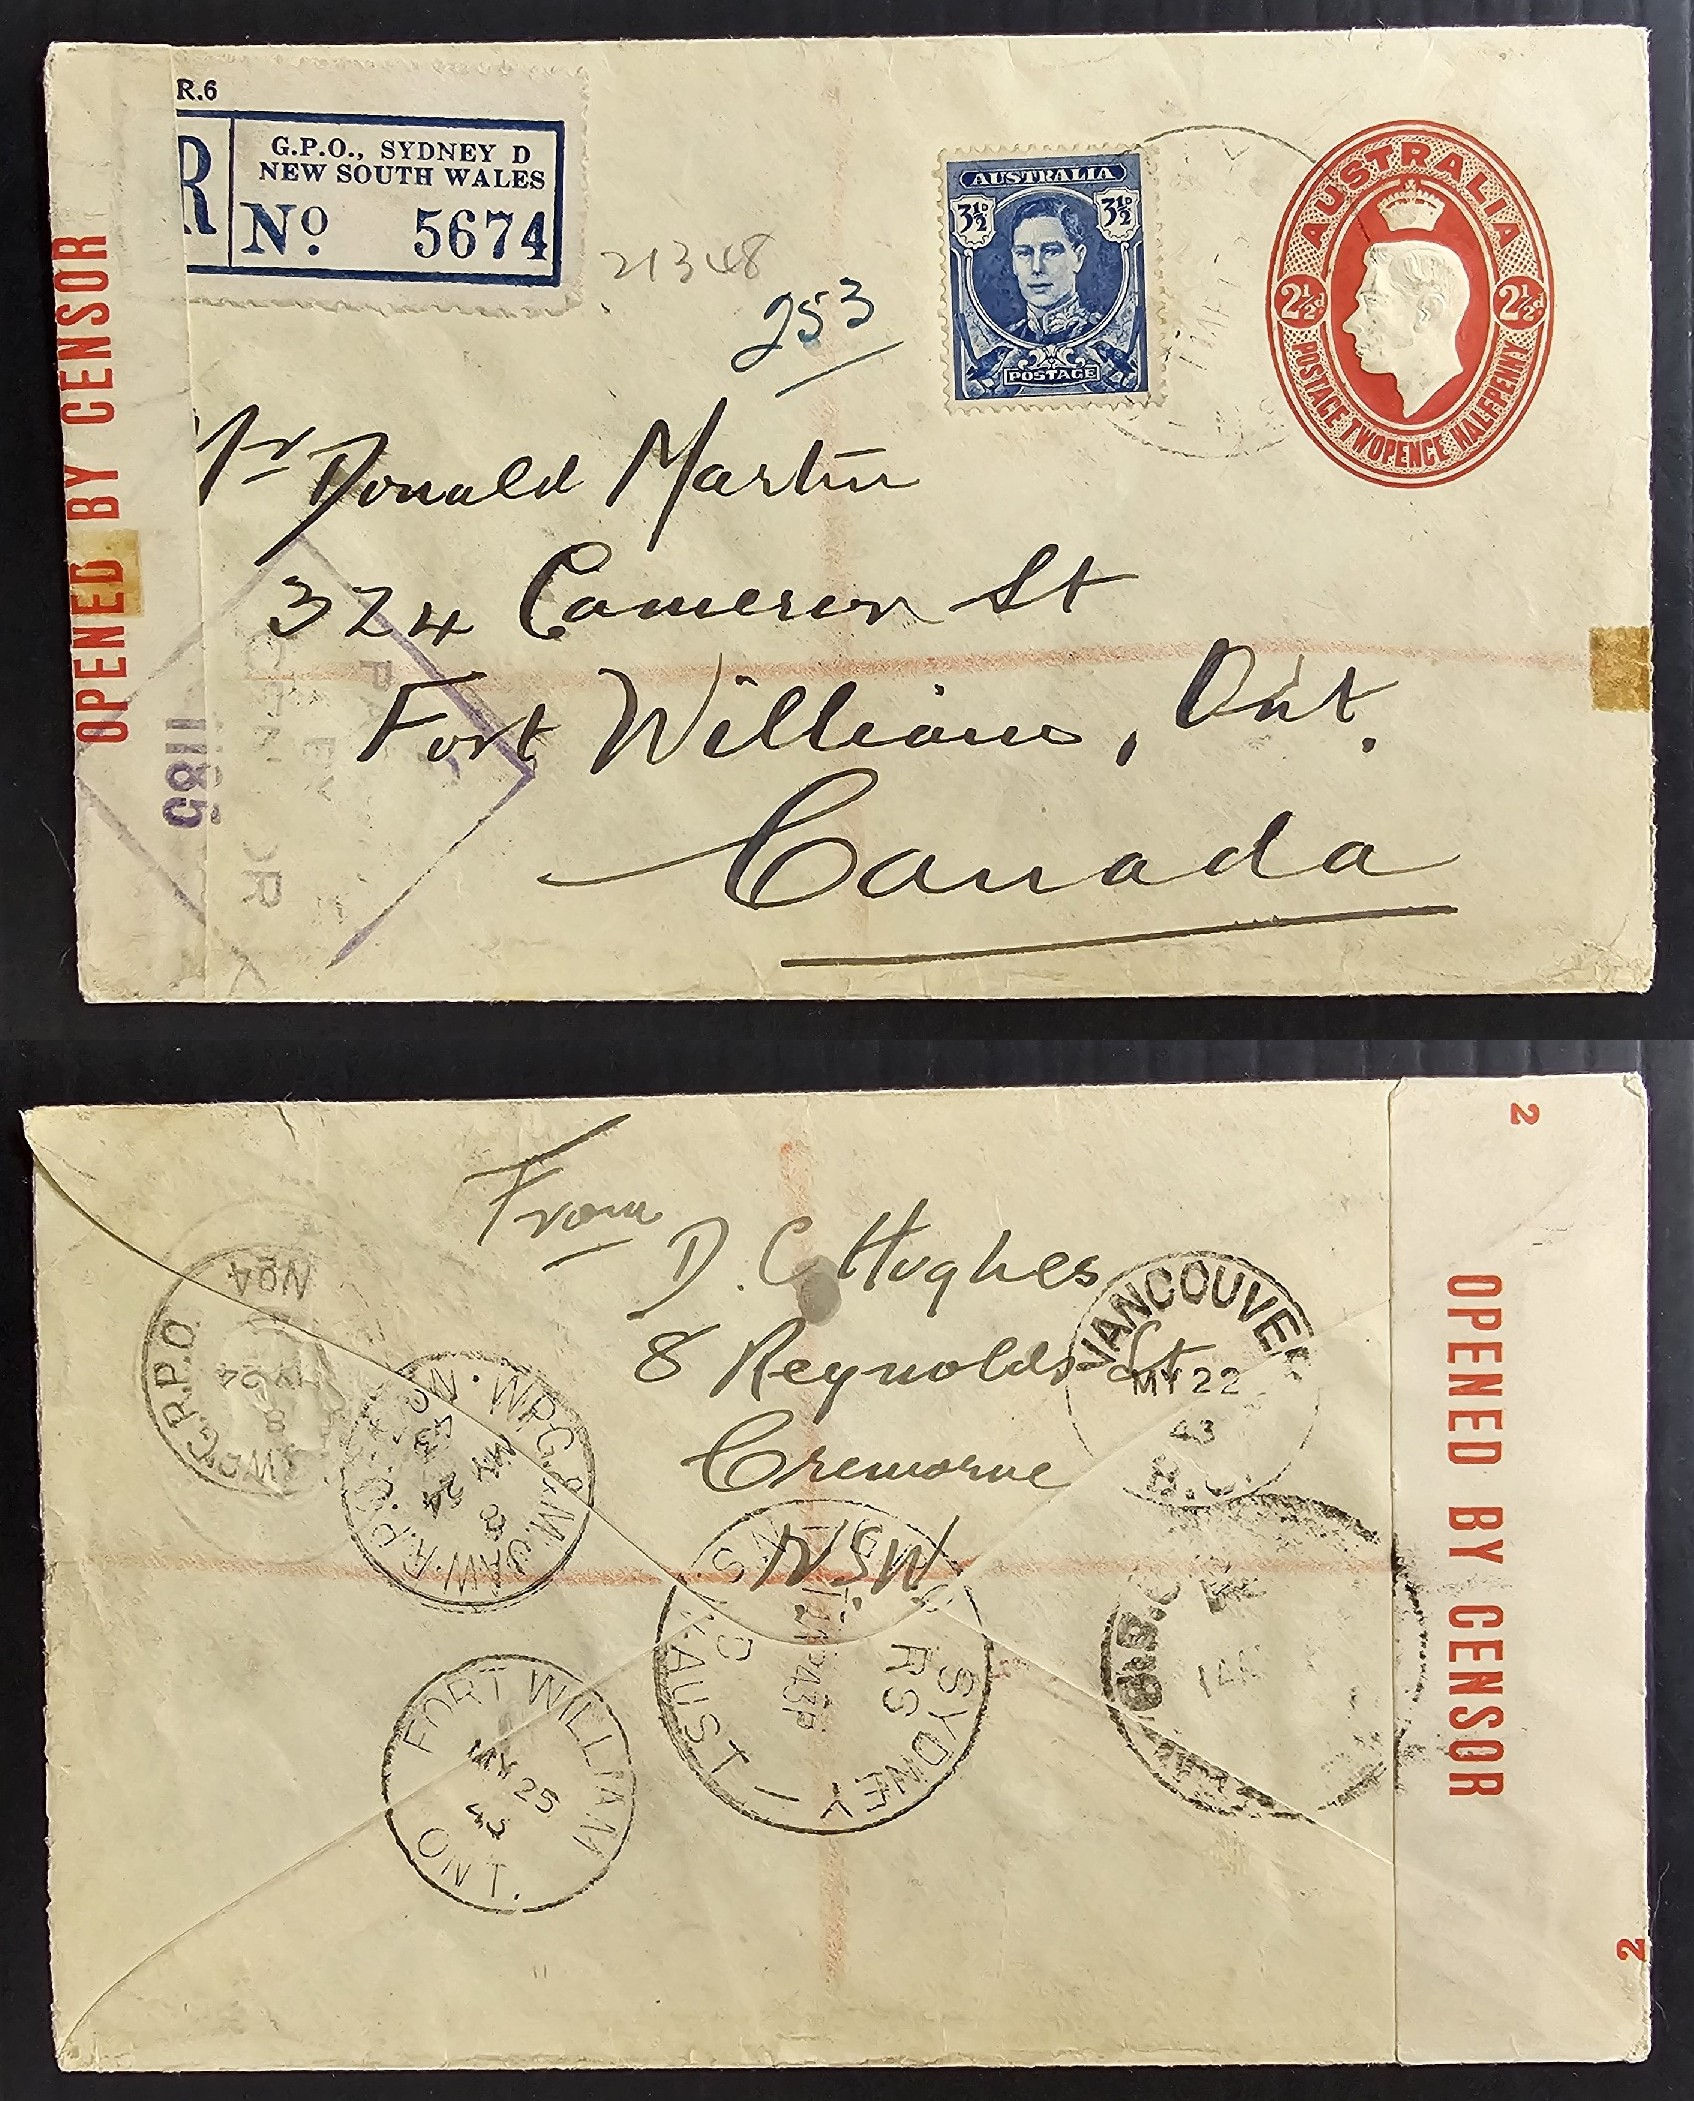 R.6
R
G.P.O., SYDNEY D
NEW SOUTH WALES
No. 5674
21348
253
AUSTRALIA
3½D 3½D
POSTAGE
AUSTRALIA
2½d 2½d
POSTAGE TWOPENCE HALFPENNY
OPENED BY CENSOR
1185
Mr Donald Martin
324 Cameron St
Fort William, Ont.
Canada
2
From
D. C. Hughes
8 Reynolds St
Cremorne
NSW
VANCOUVER
MY 22
43
B.C.
R.P.O.
No 4
MY 24
8
WPG. & M. JAW. R.P.O.
MY 24
43
8
SYDNEY
RS
D
N.S.W. AUST
FORT WILLIAM
MY 25
43
ONT.
OPENED BY CENSOR
2